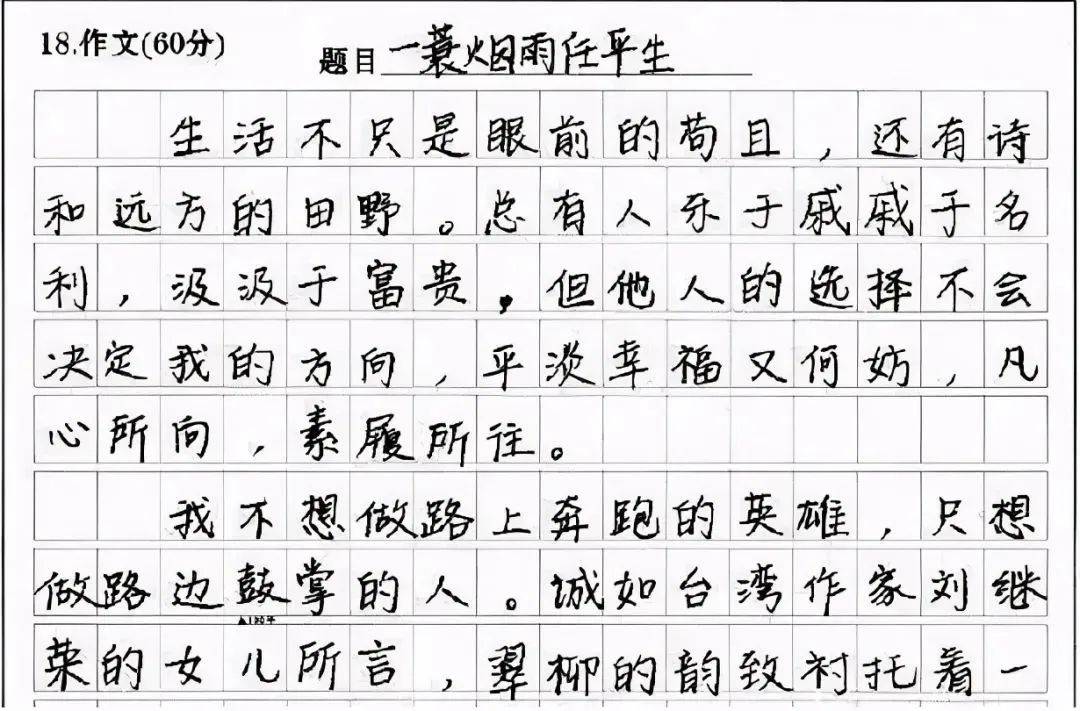 18.作文(60分)
题目 一蓑烟雨任平生
生活不只是眼前的苟且，还有诗
和远方的田野。总有人乐于戚戚于名
利，汲汲于富贵，但他人的选择不会
决定我的方向，平淡幸福又何妨，凡
心所向，素履所往。
我不想做路上奔跑的英雄，只想
做路边鼓掌的人。城如台湾作家刘继
荣的女儿所言，翠柳的韵致衬托着一